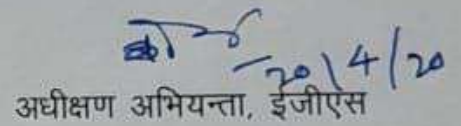 20/4/20
अधीक्षण अभियन्ता, ईजीएस